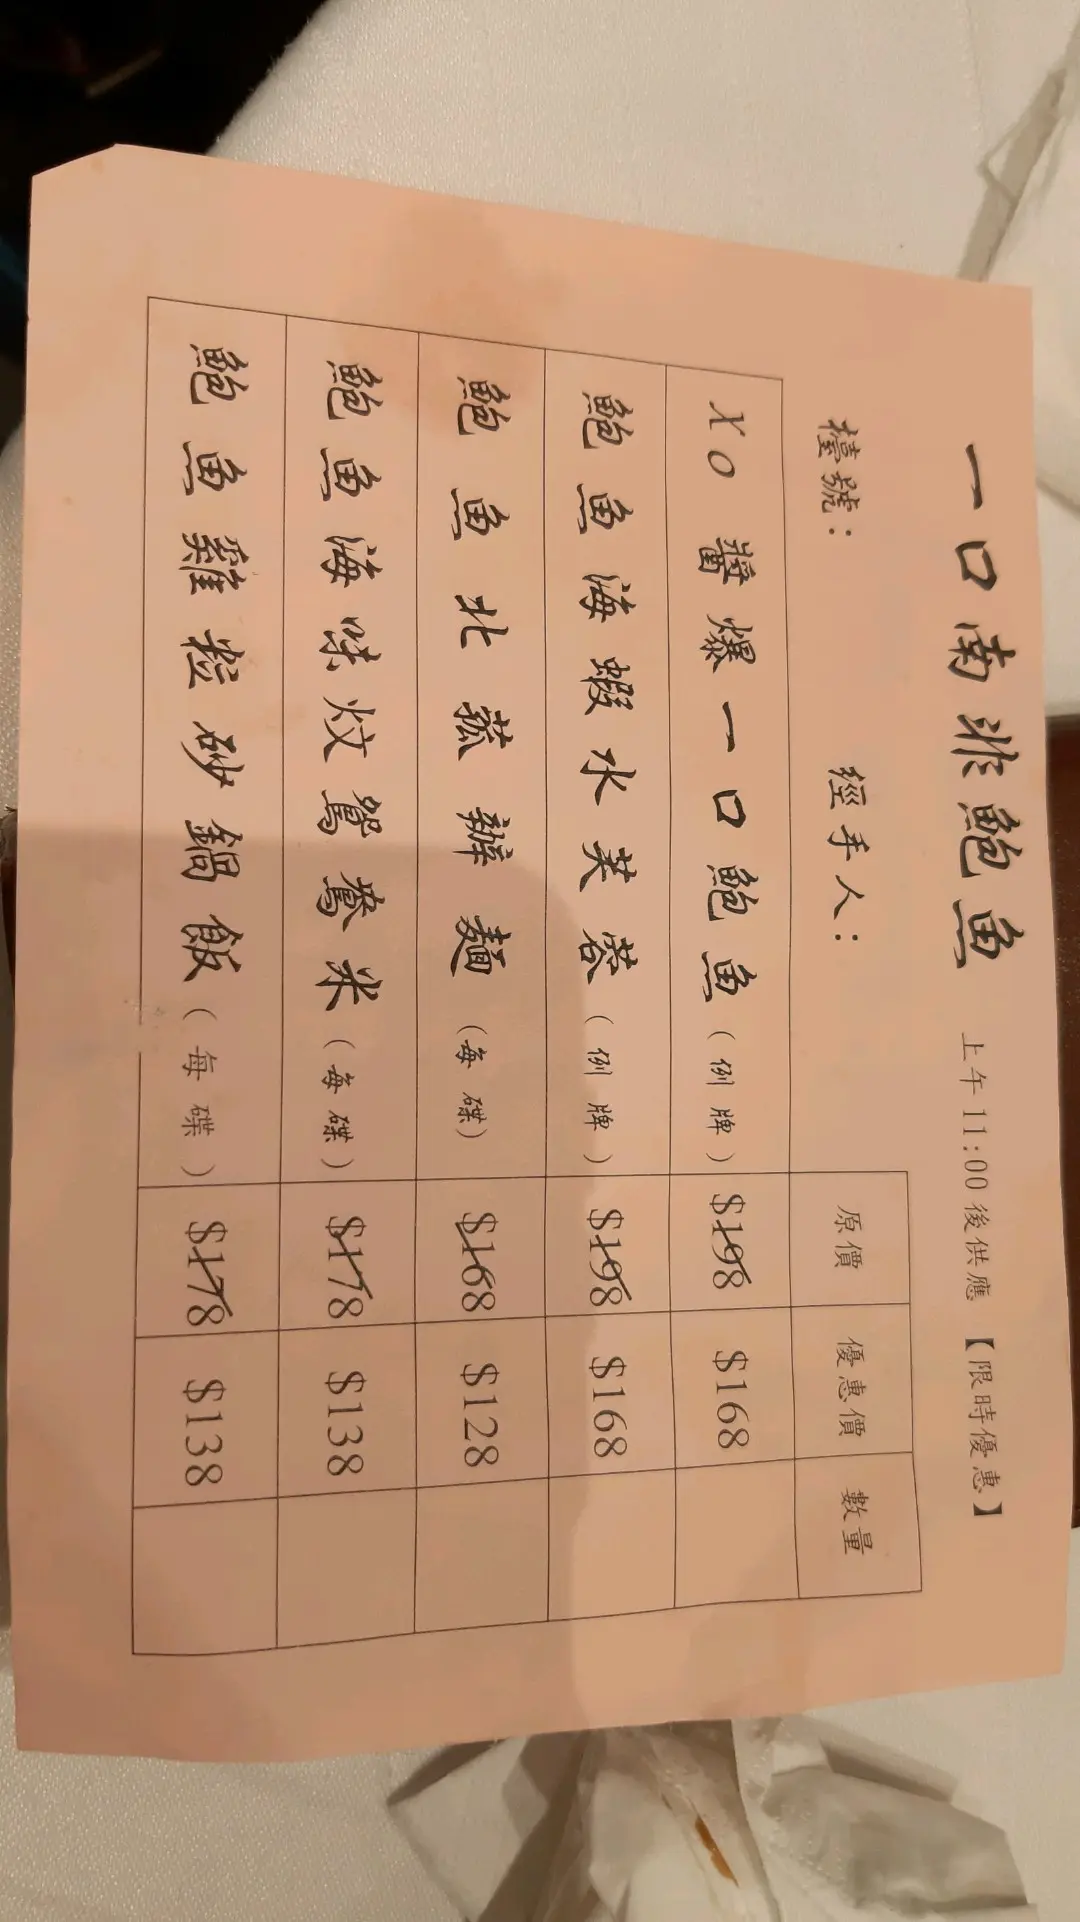 一口南非鮑魚 上午11:00後供應【限時優惠】
檯號： 經手人：
原價 優惠價 數量
XO 醬爆一口鮑魚（例牌） $198 $168
鮑魚海蝦水芙蓉（例牌） $198 $168
鮑魚北菰辦麵（每碟） $168 $128
鮑魚海味炆鴛鴦米（每碟） $178 $138
鮑魚雞粒砂鍋飯（每碟） $178 $138